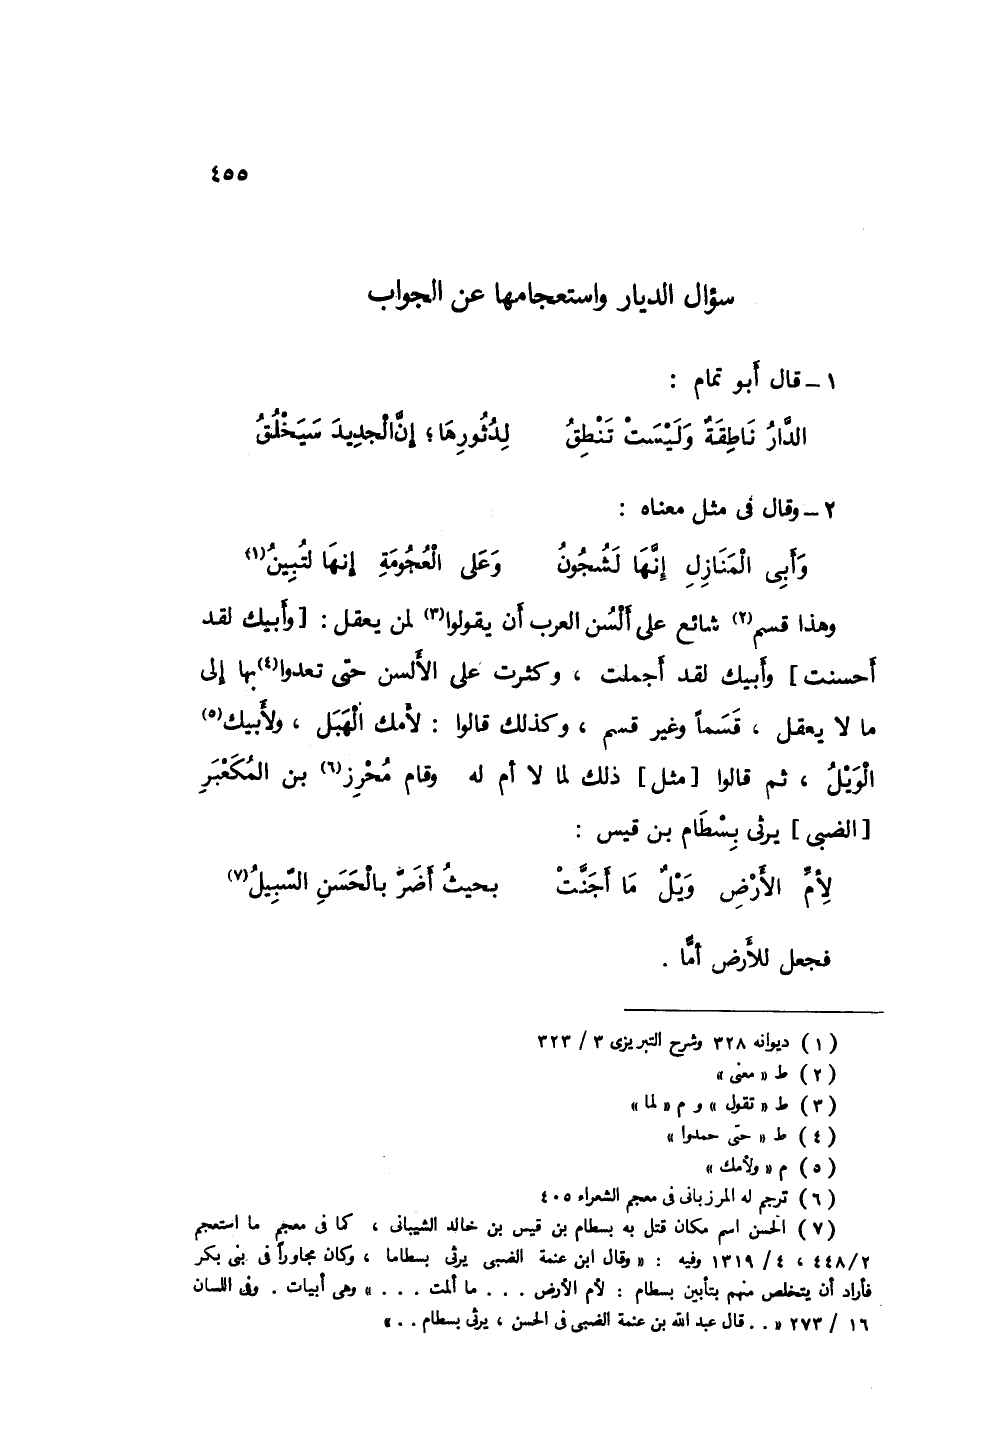 ٤٥٥
سؤال الديار واستعجامها عن الجواب
١ ــ قال أَبو تمام :
الدَّارُ نَاطِقَةٌ وَلَيْسَتْ تَنْطِقُ لِدُثُورِهَا ؛ إِنَّ الْجديدَ سَيَخْلُقُ
٢ ــ وقال فى مثل معناه :
وَأَبِى الْمَنَازِلِ إِنَّهَا لَشُجُونُ وَعَلى الْعُجُومَةِ إِنهَا لتُبِينُ(١)
وهذا قسم(٢) شائع على أَلْسُن العرب أَن يقولوا(٣) لمن يعقل : [ وأَبيك لقد
أَحسنت ] وأَبيك لقد أَجملت ، وكثرت على الأَلسن حتّى تعدوا(٤) بها إلى
ما لا يعقل ، قَسَماً وغير قسم ، وكذلك قالوا : لأُمك الْهَبَل ، ولأَبيك(٥)
الْوَيْلُ ، ثم قالوا [ مثل ] ذلك لما لا أم له وقام مُحْرِز(٦) بن المُكَعْبَرِ
[ الضبى ] يرثى بِسْطَام بن قيس :
لِأُمِّ الأَرْضِ وَيْلٌ مَا أَجَنَّتْ بحيثُ أَضَرَّ بالْحَسَنِ السّبِيلُ(٧)
فجعل للأَرض أُمًّا .
( ١ ) ديوانه ٣٢٨ وشرح التبريزى ٣ / ٣٢٣
( ٢ ) ط « معنى »
( ٣ ) ط « تقول » و م « لما »
( ٤ ) ط « حتّى حمدوا »
( ٥ ) م « ولأمك »
( ٦ ) ترجم له المرزبانى فى معجم الشعراء ٤٠٥
( ٧ ) الحسن اسم مكان قتل به بسطام بن قيس بن خالد الشيبانى ، كما فى معجم ما استعجم
٤٤٨/٢ ، ٤ / ١٣١٩ وفيه : « وقال ابن عنمة الضبى يرثى بسطاما ، وكان مجاوراً فى بنى بكر
فأراد أن يتخلص منهم بتأبين بسطام : لأم الأرض . . . ما ألمت . . . » وهى أبيات . وفى اللسان
١٦ / ٢٧٣ « . . قال عبد الله بن عنمة الضبى فى الحسن ، يرثى بسطام . . »